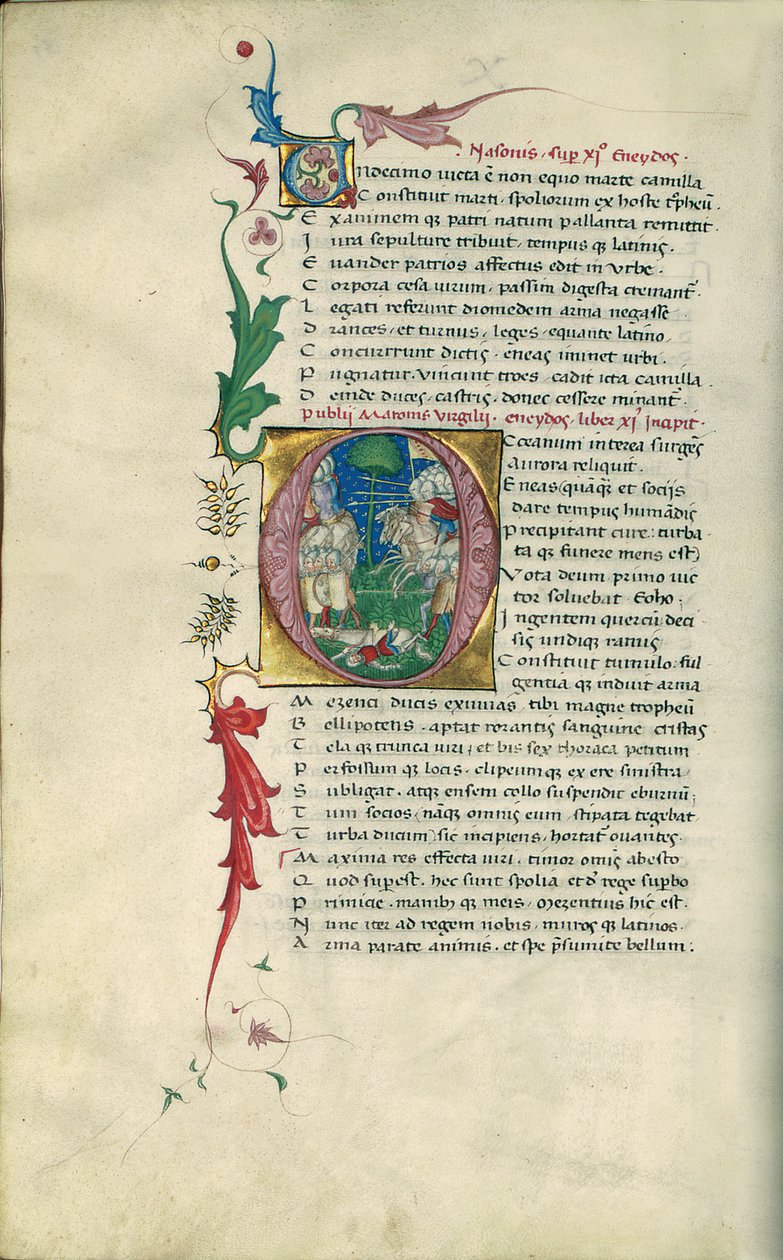 Nasonis, sup̱ xi° Eneydos.
Undecimo uicta ē non equo marte camilla
Constituit marti, spoliorum ex hoste tͥpheū.
Exanimem qꝫ patri natum pallanta remittit.
Iura sepulture tribuit, tempus qꝫ latinis.
Euander patrios affectus edit in Vrbe.
Corpora cesa uirum, passim digesta cremant̄.
Legati referunt diomedem arma negasse
Drances, et turnus, leges, equante latino,
Concurrrunt dictis. eneas iminet urbi.
Pugnatur. Vincunt troes, cadit icta camilla.
Deinde duces, castris, donec cessere minant̄.
Publii Maronis Virgilii. eneydos, liber xi' Incipit.
Oceanum interea surgēs
Aurora reliquit.
Eneas (quāqꝫ et socijs
dare tempus humādis
Precipitant cure: turba
ta qꝫ funere mens est)
Vota deum primo uic
tor soluebat Eoho;
Ingentem quercū deci
sis undiqꝫ ramis
Constituit tumulo: ful
gentia qꝫ induit arma
Mezenci ducis exuuias, tibi magne tropheū
Bellipotens. aptat rorantis sanguine cristas
Tela qꝫ trunca uiri; et bis sex thoraca petitum
Perfossum qꝫ locis. clipeum qꝫ ex ere sinistra
Subligat. atqꝫ ensem collo suspendit eburnū;
Tum socios (nāqꝫ omnis eum, stipata tegebat
Turba ducum) sic incipiens, hortat̄ ouantes.
Maxima res effecta uiri. timor om̄is abesto
Quod sup̱est. hec sunt spolia et d̄ rege sup̱bo
Primicie. manibꝫ qꝫ meis, Mezentius hic est.
Nunc iter ad regem nobis, muros qꝫ latinos.
Arma parate animis. et spe p̄sumite bellum: